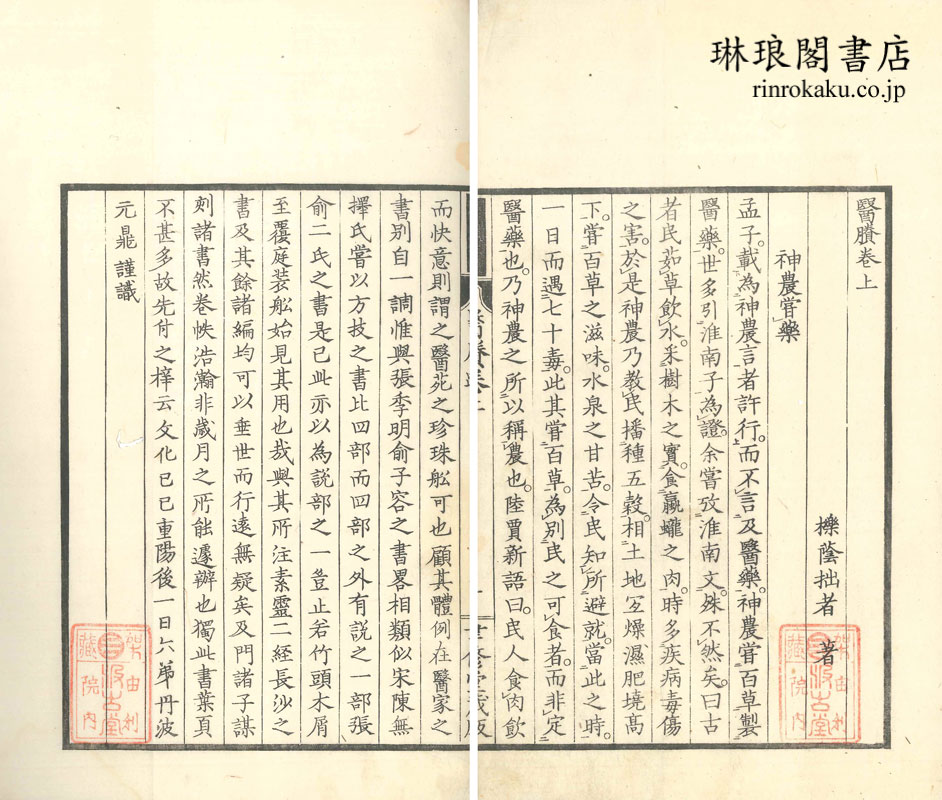 琳琅閣書店
rinrokaku.co.jp
醫賸卷上
櫟蔭拙者　著
神農嘗藥
孟子。載為神農言者許行。而不言及醫藥。神農嘗百草製
醫藥。世多引淮南子為證。余嘗攷淮南文。殊不然矣。曰古
者民茹草飲水。采樹木之實。食蠃蠬之肉。時多疾病毒傷
之害。於是神農乃教民播種五穀。相土地冝燥濕肥墝高
下。嘗百草之滋味。水泉之甘苦。令民知所避就。當此之時。
一日而遇七十毒。此其嘗百草。為別民之可食者。而非定
醫藥也。乃神農之所以稱農也。陸賈新語曰。民人食肉飲
而快意則謂之醫苑之珍珠舩可也顧其體例在醫家之
書別自一調惟與張季明俞子容之書畧相類似宋陳無
擇氏嘗以方技之書比四部而四部之外有説之一部張
俞二氏之書是已此亦以為説部之一豈止若竹頭木屑
至覆庭装舩始見其用也哉與其所注素靈二経長沙之
書及其餘諸編均可以垂世而行遠無疑矣及門諸子謀
刻諸書然卷帙浩瀚非歳月之所能遽辦也獨此書葉頁
不甚多故先付之梓云文化己巳重陽後一日六弟丹波
元鼂謹識